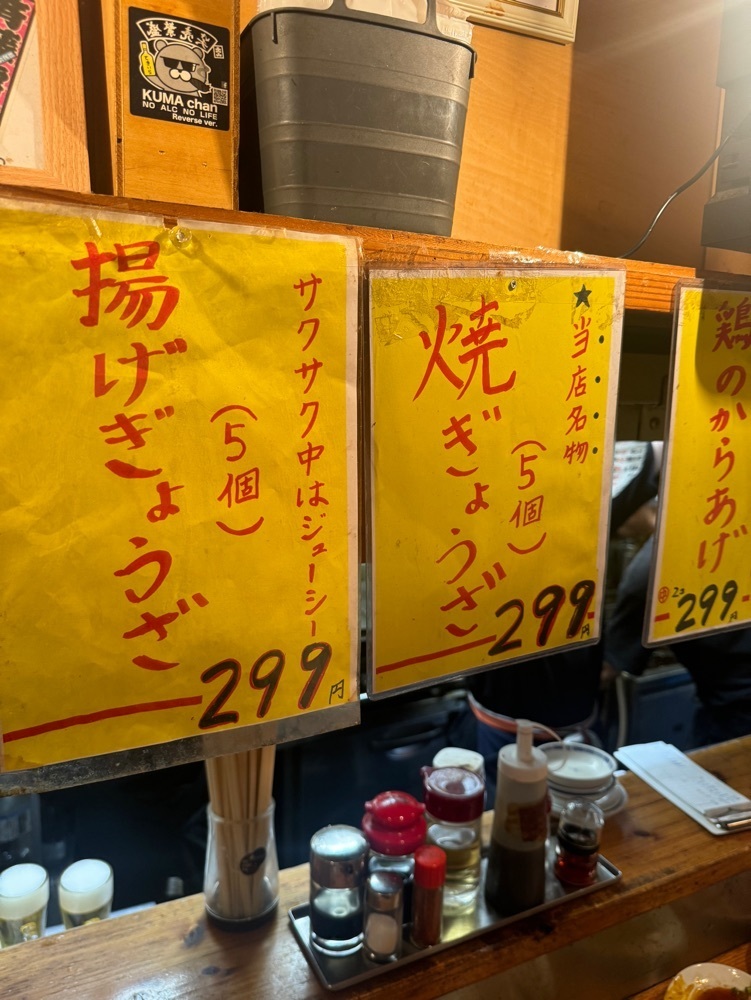 KUMA chan
NO ALC NO LIFE
Reverse ver.
サクサク中はジューシー
揚げぎょうざ
(5個)
299円
★当店名物
焼ぎょうざ
(5個)
299円
鶏のからあげ
2コ
299円